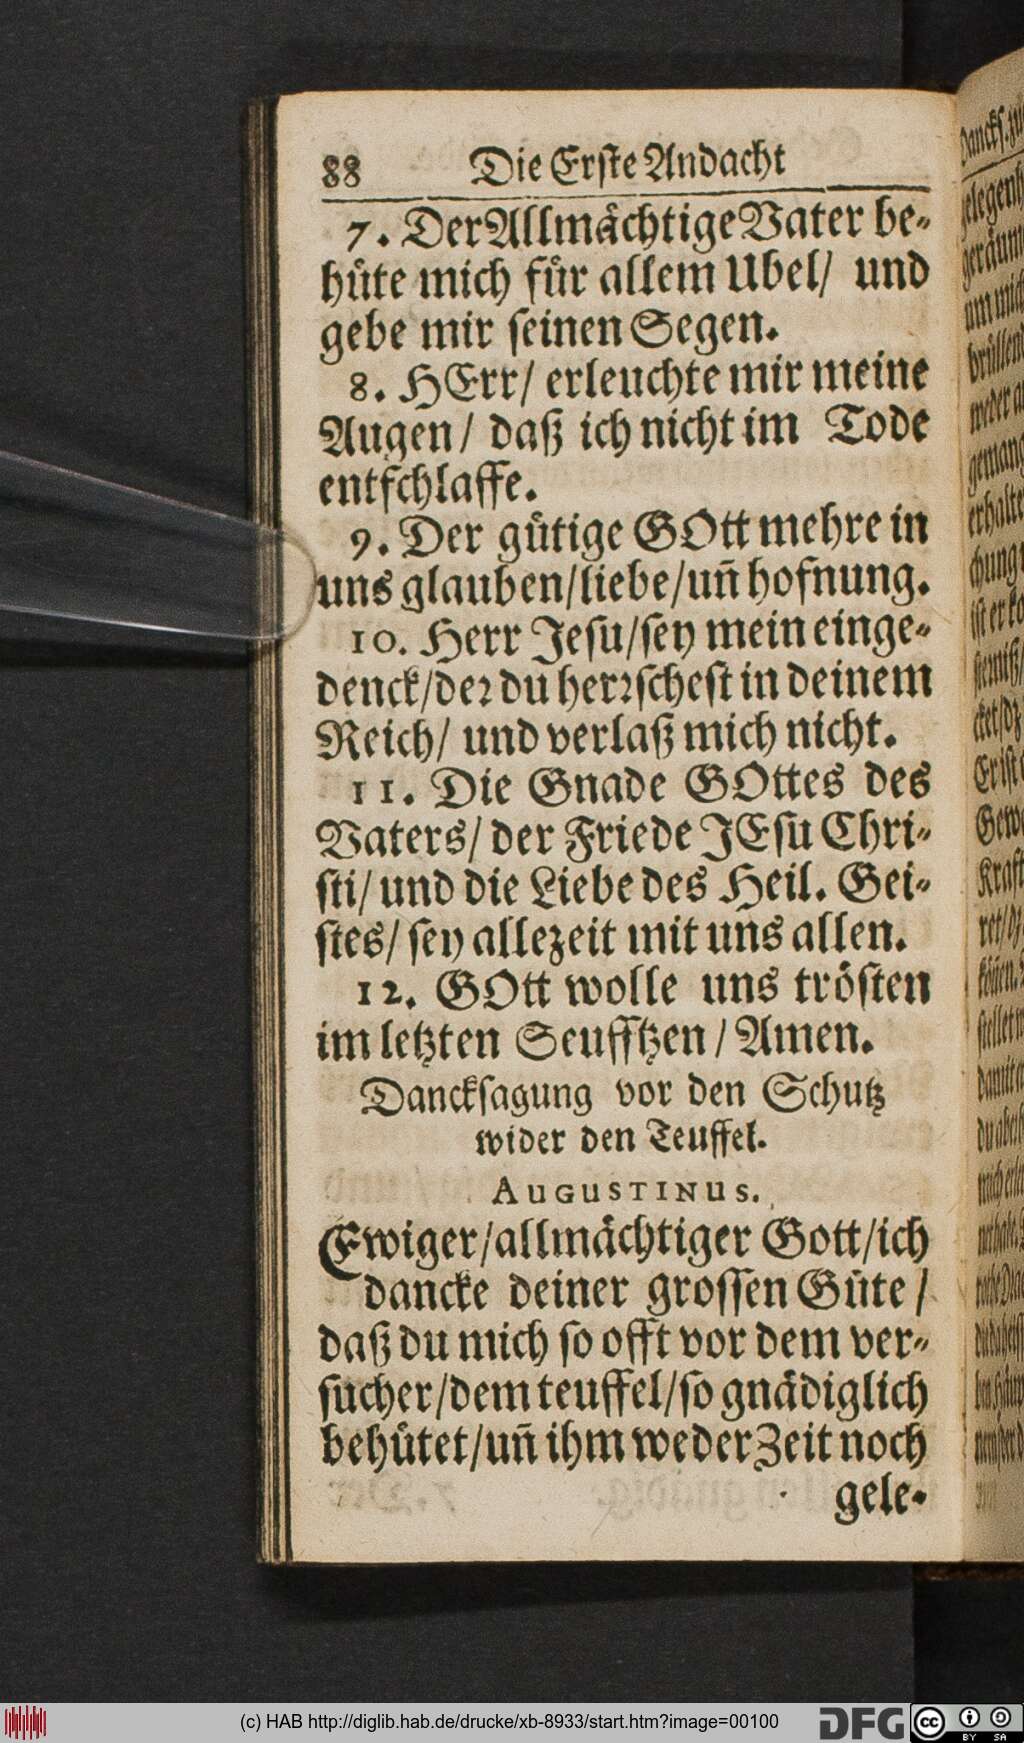 88 Die Erſte Andacht
7. Der Allmaͤchtige Vater be⸗
huͤte mich fuͤr allem Ubel/ und
gebe mir ſeinen Segen.
8. HErr/ erleuchte mir meine
Augen/ daß ich nicht im Tode
entſchlaffe.
9. Der guͤtige GOtt mehre in
uns glauben/liebe/uñ hofnung.
10. Herr Jeſu/ſey mein einge⸗
denck/deꝛ du herꝛſcheſt in deinem
Reich/ und verlaß mich nicht.
11. Die Gnade GOttes des
Vaters/ der Friede JEſu Chri⸗
ſti/ und die Liebe des Heil. Gei⸗
ſtes/ ſey allezeit mit uns allen.
12. GOtt wolle uns troͤſten
im letzten Seufftzen/ Amen.
Danckſagung vor den Schutz
wider den Teuffel.
AUGUSTINUS.
Ewiger/allmaͤchtiger Gott/ich
dancke deiner groſſen Guͤte/
daß du mich ſo offt vor dem ver⸗
ſucher/dem teuffel/ſo gnaͤdiglich
behuͤtet/uñ ihm weder Zeit noch
gele⸗
(c) HAB http://diglib.hab.de/drucke/xb-8933/start.htm?image=00100
DFG
cc BY SA